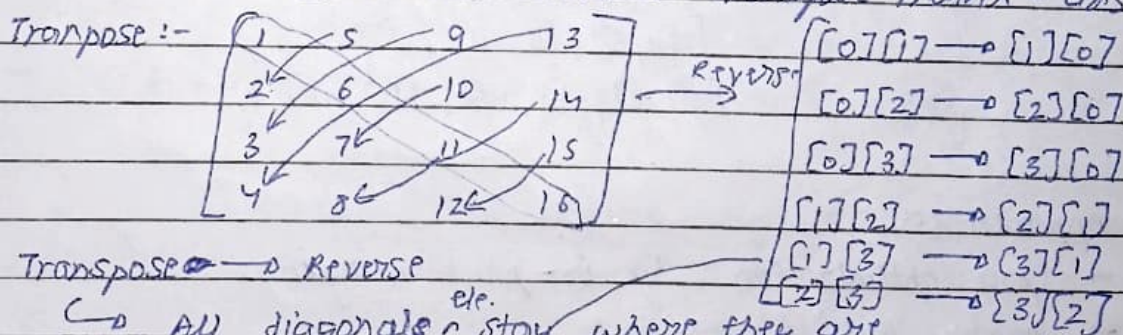 Tranpose :- 1 5 9 13
2 6 10 14
3 7 11 15
4 8 12 16
Reverse
[0][1] → [1][0]
[0][2] → [2][0]
[0][3] → [3][0]
[1][2] → [2][1]
[1][3] → [3][1]
[2][3] → [3][2]
Transpose → Reverse
↳ All diagonals ele. stay where they are